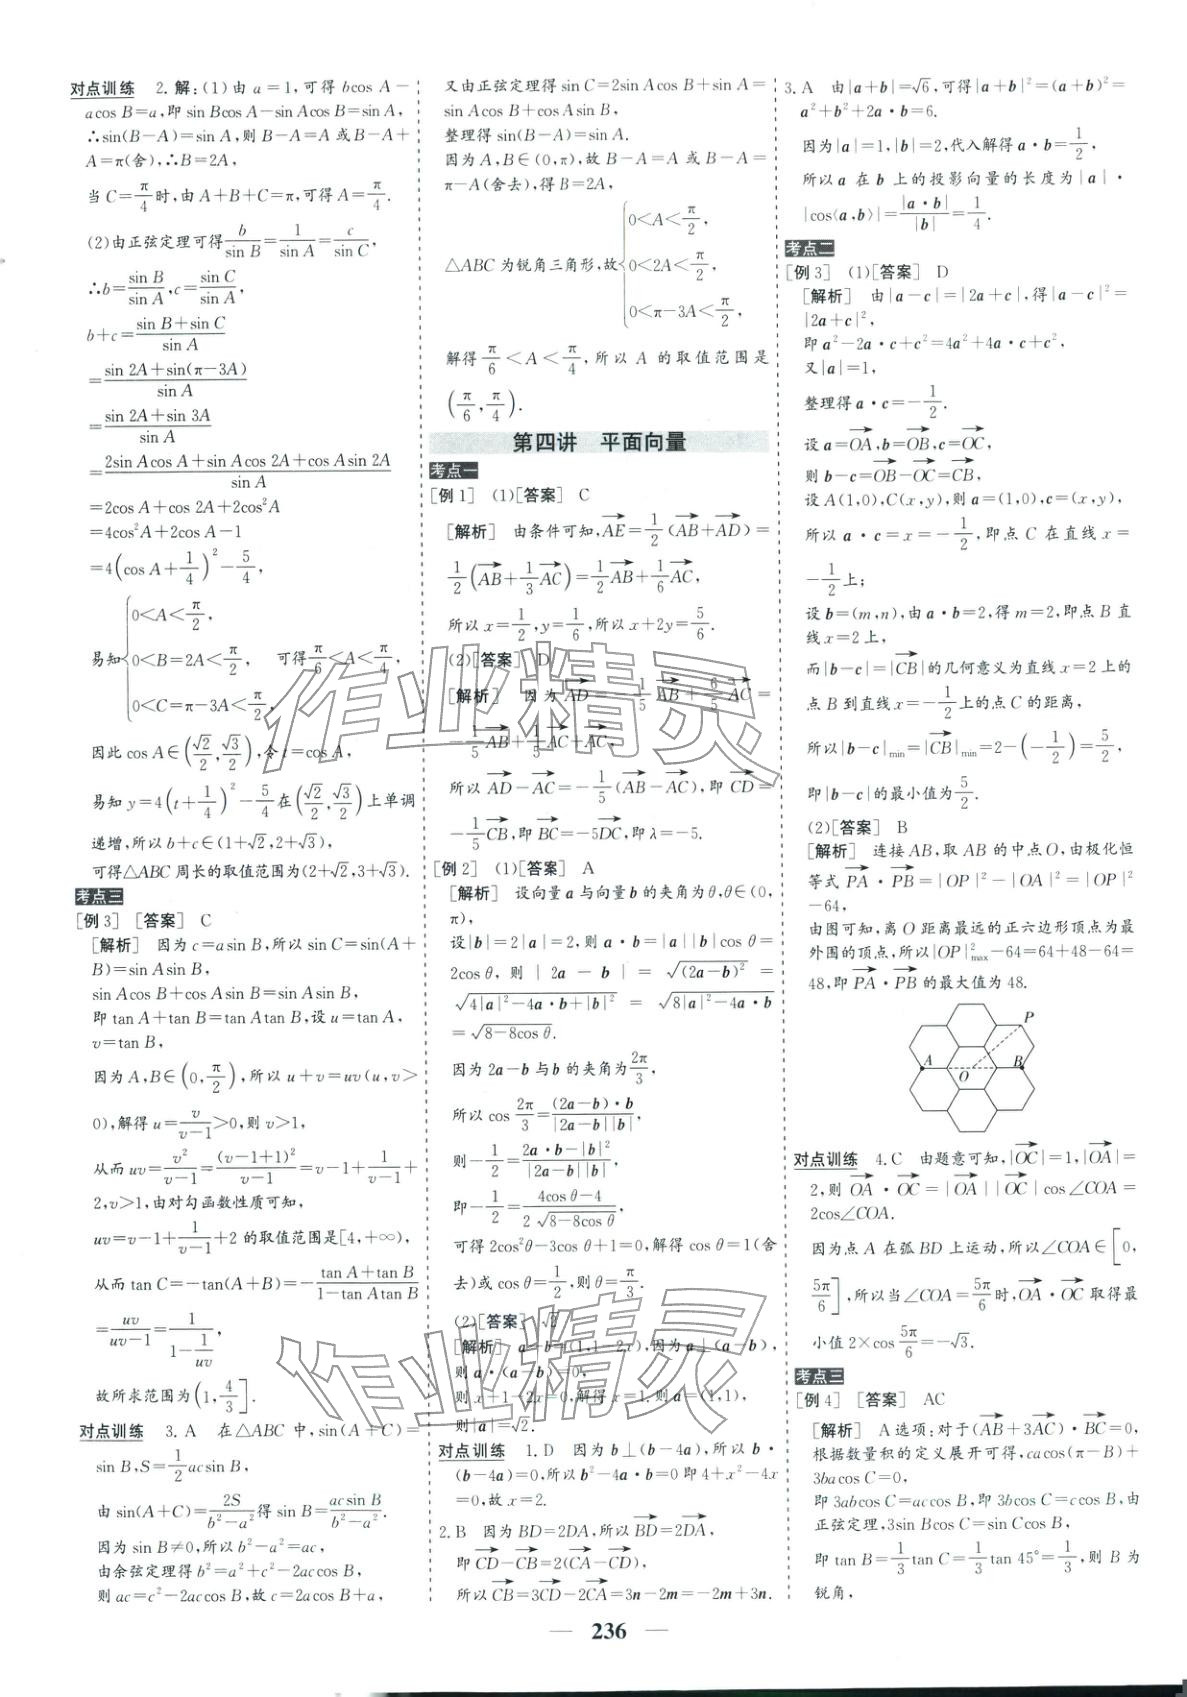 对点训练 2.解:(1)由 a=1,可得 bcos A-
acos B=a,即 sin Bcos A-sin Acos B=sin A,
∴sin(B-A)=sin A,则 B-A=A 或 B-A+
A=π(舍),∴B=2A,
当 C=π/4时,由 A+B+C=π,可得 A=π/4.
(2)由正弦定理可得b/sin B=1/sin A=c/sin C,
∴b=sin B/sin A,c=sin C/sin A,
b+c=(sin B+sin C)/sin A
=(sin 2A+sin(π-3A))/sin A
=(sin 2A+sin 3A)/sin A
=(2sin Acos A+sin Acos 2A+cos Asin 2A)/sin A
=2cos A+cos 2A+2cos²A
=4cos²A+2cos A-1
=4(cos A+1/4)²-5/4,
易知{0<A<π/2, 0<B=2A<π/2, 0<C=π-3A<π/2, 可得π/6<A<π/4,
因此 cos A∈(√2/2,√3/2),令 t=cos A,
易知 y=4(t+1/4)²-5/4在(√2/2,√3/2)上单调
递增,所以 b+c∈(1+√2,2+√3),
可得△ABC 周长的取值范围为(2+√2,3+√3).
考点三
[例 3] [答案] C
[解析] 因为 c=asin B,所以 sin C=sin(A+
B)=sin Asin B,
sin Acos B+cos Asin B=sin Asin B,
即 tan A+tan B=tan Atan B,设 u=tan A,
v=tan B,
因为 A,B∈(0,π/2),所以 u+v=uv(u,v>
0),解得 u=v/(v-1)>0,则 v>1,
从而 uv=v²/(v-1)=(v-1+1)²/(v-1)=v-1+1/(v-1)+
2,v>1,由对勾函数性质可知,
uv=v-1+1/(v-1)+2 的取值范围是[4,+∞),
从而 tan C=-tan(A+B)=-(tan A+tan B)/(1-tan Atan B)
=uv/(uv-1)=1/(1-1/uv),
故所求范围为(1,4/3].
对点训练 3.A 在△ABC 中,sin(A+C)=
sin B,S=1/2acsin B,
由 sin(A+C)=2S/(b²-a²)得 sin B=acsin B/(b²-a²).
因为 sin B≠0,所以 b²-a²=ac,
由余弦定理得 b²=a²+c²-2accos B,
则 ac=c²-2accos B,故 c=2acos B+a,
又由正弦定理得 sin C=2sin Acos B+sin A=
sin Acos B+cos Asin B,
整理得 sin(B-A)=sin A.
因为 A,B∈(0,π),故 B-A=A 或 B-A=
π-A(舍去),得 B=2A,
△ABC 为锐角三角形,故{0<A<π/2, 0<2A<π/2, 0<π-3A<π/2,
解得π/6<A<π/4,所以 A 的取值范围是
(π/6,π/4).
第四讲 平面向量
考点一
[例 1] (1)[答案] C
[解析] 由条件可知,AE→=1/2(AB→+AD→)=
1/2(AB→+1/3AC→)=1/2AB→+1/6AC→,
所以 x=1/2,y=1/6,所以 x+2y=5/6.
(2)[答案] D
[解析] 因为 AD→=-1/5AB→+6/5AC→=
-1/5AB→+1/5AC→+AC→,
所以 AD→-AC→=-1/5(AB→-AC→),即 CD→=
-1/5CB→,即 BC→=-5DC→,即 λ=-5.
[例 2] (1)[答案] A
[解析] 设向量 a 与向量 b 的夹角为 θ,θ∈(0,
π),
设|b|=2|a|=2,则 a·b=|a||b|cos θ=
2cos θ,则|2a-b|=√(2a-b)²=
√4|a|²-4a·b+|b|²=√8|a|²-4a·b
=√8-8cos θ.
因为 2a-b 与 b 的夹角为2π/3,
所以 cos 2π/3=(2a-b)·b/|2a-b||b|,
则-1/2=(2a·b-|b|²)/|2a-b||b|,
即-1/2=(4cos θ-4)/(2√8-8cos θ)
可得 2cos²θ-3cos θ+1=0,解得 cos θ=1(舍
去)或 cos θ=1/2,则 θ=π/3.
(2)[答案] √2
[解析] a-b=(1,1-2x),因为 a⊥(a-b),
则 a·(a-b)=0,
则 x+1-2x=0,解得 x=1.则 a=(1,1),
则|a|=√2.
对点训练 1.D 因为 b⊥(b-4a),所以 b·
(b-4a)=0,所以 b²-4a·b=0 即 4+x²-4x
=0,故 x=2.
2.B 因为 BD=2DA,所以BD→=2DA→,
即 CD→-CB→=2(CA→-CD→),
所以 CB→=3CD→-2CA→=3n-2m=-2m+3n.
3.A 由|a+b|=√6,可得|a+b|²=(a+b)²=
a²+b²+2a·b=6.
因为|a|=1,|b|=2,代入解得 a·b=1/2,
所以 a 在 b 上的投影向量的长度为|a|·
|cos⟨a,b⟩|=|a·b|/|b|=1/4.
考点二
[例 3] (1)[答案] D
[解析] 由|a-c|=|2a+c|,得|a-c|²=
|2a+c|²,
即 a²-2a·c+c²=4a²+4a·c+c²,
又|a|=1,
整理得 a·c=-1/2.
设 a=OA→,b=OB→,c=OC→,
则 b-c=OB→-OC→=CB→,
设 A(1,0),C(x,y),则 a=(1,0),c=(x,y),
所以 a·c=x=-1/2,即点 C 在直线 x=
-1/2上;
设 b=(m,n),由 a·b=2,得 m=2,即点 B 直
线 x=2 上,
而|b-c|=|CB→|的几何意义为直线 x=2 上的
点 B 到直线 x=-1/2上的点 C 的距离,
所以|b-c|min=|CB→|min=2-(-1/2)=5/2,
即|b-c|的最小值为5/2.
(2)[答案] B
[解析] 连接 AB,取 AB 的中点 O,由极化恒
等式 PA→·PB→=|OP|²-|OA|²=|OP|²
-64,
由图可知,离 O 距离最远的正六边形顶点为最
外围的顶点,所以|OP|²max-64=64+48-64=
48,即 PA→·PB→的最大值为 48.
P
A
O
B
对点训练 4.C 由题意可知,|OC→|=1,|OA→|=
2,则 OA→·OC→=|OA→||OC→|cos∠COA=
2cos∠COA.
因为点 A 在弧 BD 上运动,所以∠COA∈[0,
5π/6],所以当∠COA=5π/6时,OA→·OC→取得最
小值 2×cos 5π/6=-√3.
考点三
[例 4] [答案] AC
[解析] A 选项:对于(AB→+3AC→)·BC→=0,
根据数量积的定义展开可得,cacos(π-B)+
3bacos C=0,
即 3abcos C=accos B,即 3bcos C=ccos B,由
正弦定理,3sin Bcos C=sin Ccos B,
即 tan B=1/3tan C=1/3tan 45°=1/3,则 B 为
锐角,
— 236 —
作业精灵
作业精灵